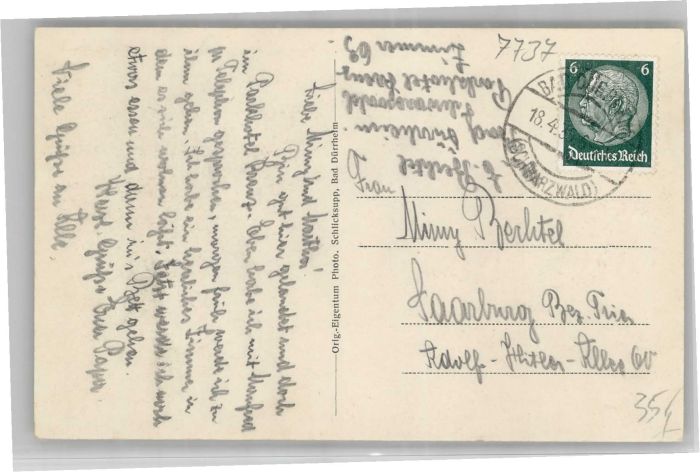 7737
Liebe Mimy und Martha!
Bin gut hier gelandet und doch
im Parkhotel Kreuz. Eben habe ich mit
per Telephon gesprochen, morgen früh werde ich zu
ihm gehen. Ich habe ein herrliches Zimmer in
dem es sich wohnen läßt. Jetzt werde ich noch
etwas essen und dann in's Bett gehen.
Herzl. Grüße Euer Papa.
Viele Grüße an Alle.
Orig.-Eigentum Photo. Schlicksupp, Bad Dürrheim
Bechtel
Bad Dürrheim
Schwarzwald
Parkhotel Kreuz
Zimmer 63
6 6
Deutsches Reich
BAD DÜRRHEIM
18.4.
(SCHWARZWALD)
Frau
Mimy Bechtel
Saarburg Bez. Trier
Adolf-Hitler-Allee 60
35